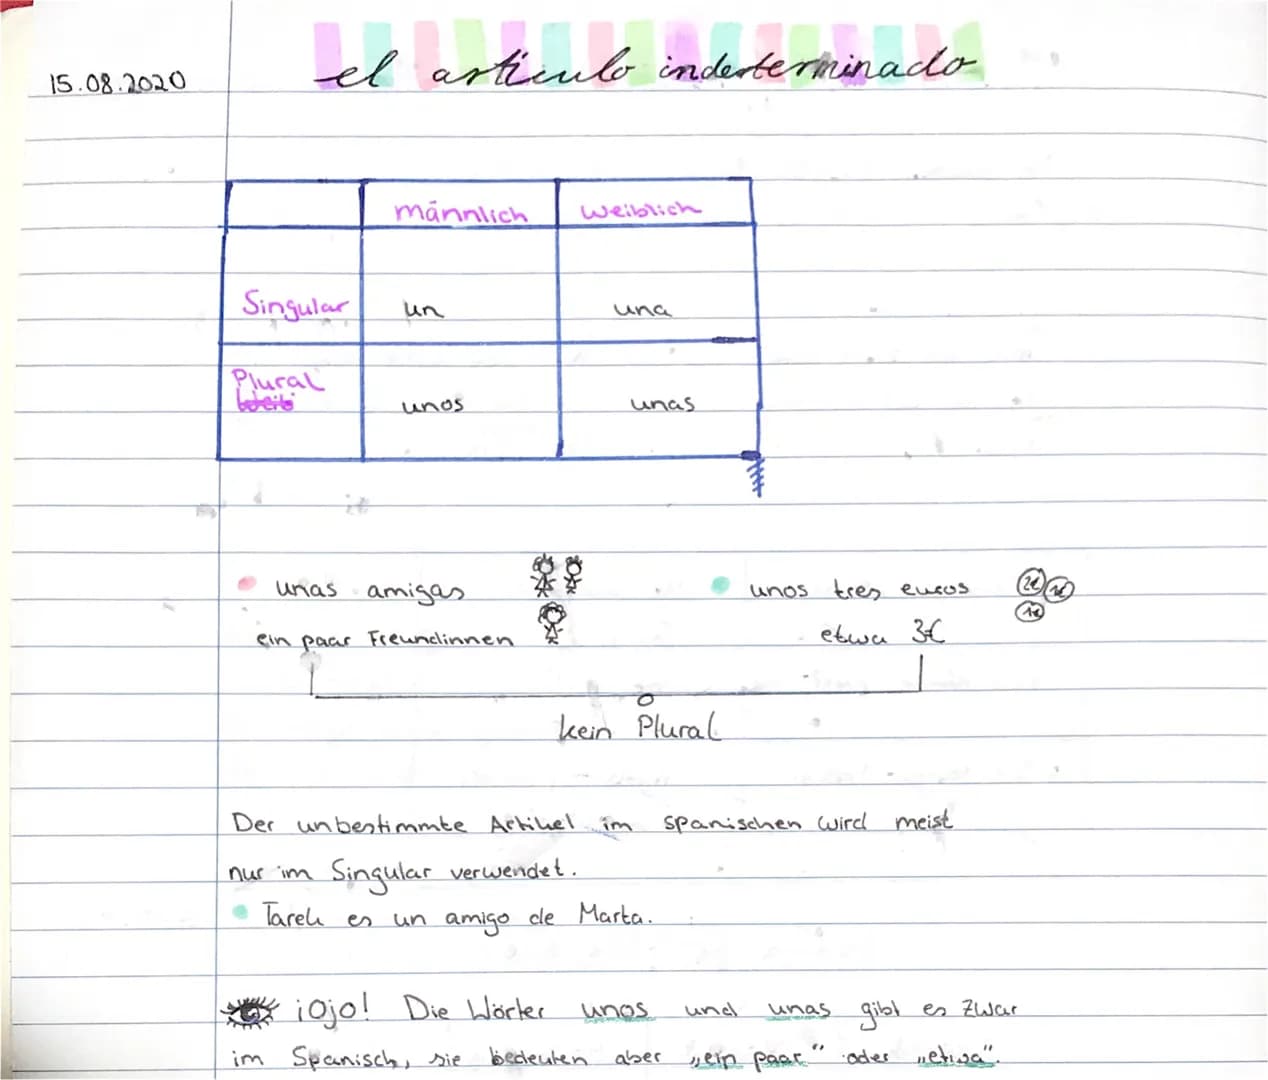 15.08.2020
el articulo inderterminado
männlich weiblich
Singular un una
Plural
unos unas
unas amigas
unos tres euros
ein paar Freundinnen
etwa 3€
kein Plural
Der unbestimmte Artikel im spanischen wird meist
nur im Singular verwendet.
Tarek es un amigo de Marta.
¡Ojo! Die Wörter unos und unas gibt es zwar
im Spanisch, sie bedeuten aber „ein paar“ oder „etwa“.